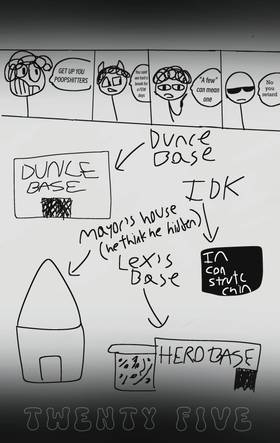 GET UP YOU
POOPSHITTERS
You said
we had a
break for
a few
days
"A few"
can mean
one
No
you
retard
DUNCE
BASE
DUNCE
BASE
IDK
Mayor's house
(he think he hidden)
In
con
strutc
chin
Lex's
Base
HERO BASE
TWENTY FIVE